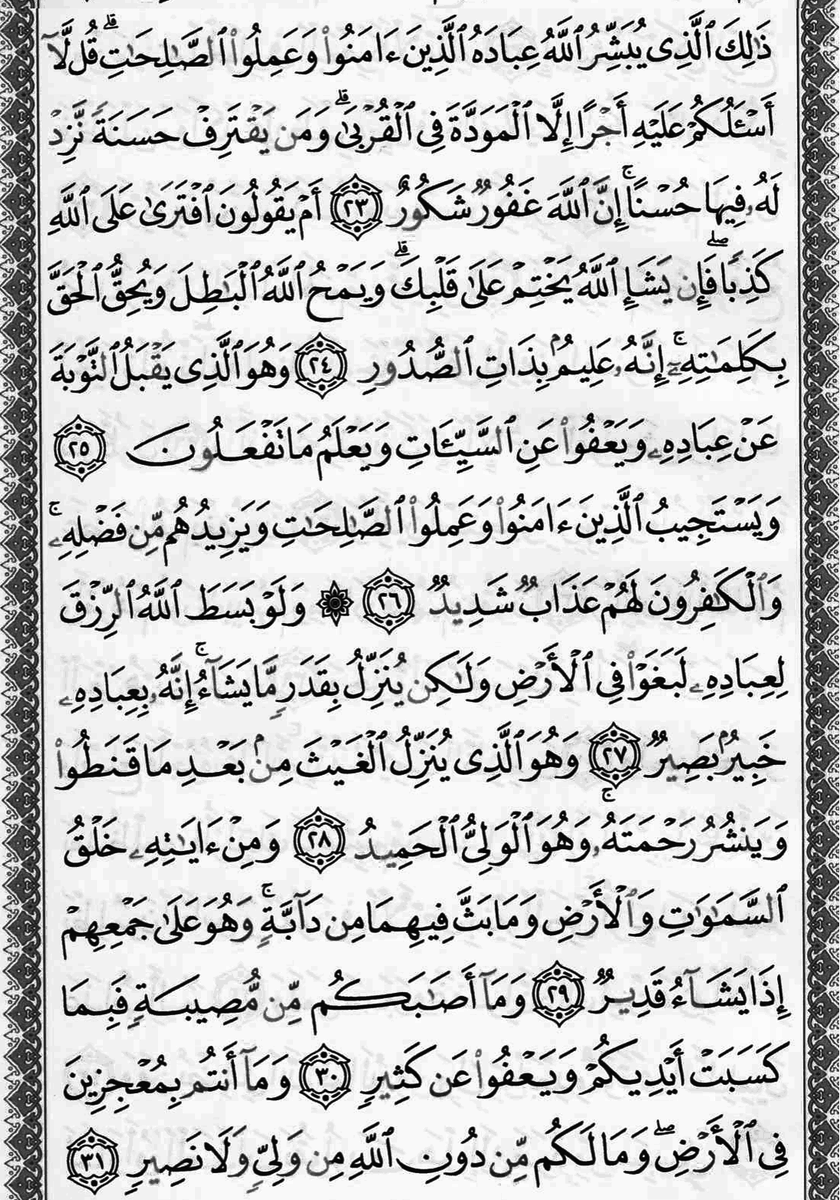 ذَٰلِكَ ٱلَّذِى يُبَشِّرُ ٱللَّهُ عِبَادَهُ ٱلَّذِينَ ءَامَنُوا۟ وَعَمِلُوا۟ ٱلصَّـٰلِحَـٰتِ ۗ قُل لَّآ
أَسْـَٔلُكُمْ عَلَيْهِ أَجْرًا إِلَّا ٱلْمَوَدَّةَ فِى ٱلْقُرْبَىٰ ۗ وَمَن يَقْتَرِفْ حَسَنَةً نَّزِدْ
لَهُۥ فِيهَا حُسْنًا ۚ إِنَّ ٱللَّهَ غَفُورٌ شَكُورٌ ٢٣ أَمْ يَقُولُونَ ٱفْتَرَىٰ عَلَى ٱللَّهِ
كَذِبًا ۖ فَإِن يَشَإِ ٱللَّهُ يَخْتِمْ عَلَىٰ قَلْبِكَ ۗ وَيَمْحُ ٱللَّهُ ٱلْبَـٰطِلَ وَيُحِقُّ ٱلْحَقَّ
بِكَلِمَـٰتِهِۦٓ ۚ إِنَّهُۥ عَلِيمٌۢ بِذَاتِ ٱلصُّدُورِ ٢٤ وَهُوَ ٱلَّذِى يَقْبَلُ ٱلتَّوْبَةَ
عَنْ عِبَادِهِۦ وَيَعْفُوا۟ عَنِ ٱلسَّيِّـَٔاتِ وَيَعْلَمُ مَا تَفْعَلُونَ ٢٥
وَيَسْتَجِيبُ ٱلَّذِينَ ءَامَنُوا۟ وَعَمِلُوا۟ ٱلصَّـٰلِحَـٰتِ وَيَزِيدُهُم مِّن فَضْلِهِۦ ۚ
وَٱلْكَـٰفِرُونَ لَهُمْ عَذَابٌ شَدِيدٌ ٢٦ ۞ وَلَوْ بَسَطَ ٱللَّهُ ٱلرِّزْقَ
لِعِبَادِهِۦ لَبَغَوْا۟ فِى ٱلْأَرْضِ وَلَـٰكِن يُنَزِّلُ بِقَدَرٍ مَّا يَشَآءُ ۚ إِنَّهُۥ بِعِبَادِهِۦ
خَبِيرٌۢ بَصِيرٌ ٢٧ وَهُوَ ٱلَّذِى يُنَزِّلُ ٱلْغَيْثَ مِنۢ بَعْدِ مَا قَنَطُوا۟
وَيَنشُرُ رَحْمَتَهُۥ ۚ وَهُوَ ٱلْوَلِىُّ ٱلْحَمِيدُ ٢٨ وَمِنْ ءَايَـٰتِهِۦ خَلْقُ
ٱلسَّمَـٰوَٰتِ وَٱلْأَرْضِ وَمَا بَثَّ فِيهِمَا مِن دَآبَّةٍ ۚ وَهُوَ عَلَىٰ جَمْعِهِمْ
إِذَا يَشَآءُ قَدِيرٌ ٢٩ وَمَآ أَصَـٰبَكُم مِّن مُّصِيبَةٍ فَبِمَا
كَسَبَتْ أَيْدِيكُمْ وَيَعْفُوا۟ عَن كَثِيرٍ ٣٠ وَمَآ أَنتُم بِمُعْجِزِينَ
فِى ٱلْأَرْضِ ۖ وَمَا لَكُم مِّن دُونِ ٱللَّهِ مِن وَلِىٍّ وَلَا نَصِيرٍ ٣١